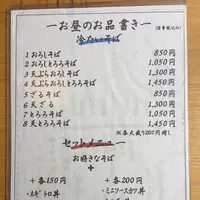 ーお昼のお品書きー (消費税込み)
冷たいそば
1 おろしそば 850円
2 おろしとろろそば 1,050円
3 天ぷらおろしそば 1,300円
4 天ぷらおろしとろろそば 1,450円
5 ざるそば 850円
6 天ざる 1,300円
7 とろろそば 1,050円
8 天とろろそば 1,450円
※各大盛り200円増し
セットメニュー
お好きなそば
+
+各150円 +各200円
・ネギトロ丼 ・ミニソースカツ丼